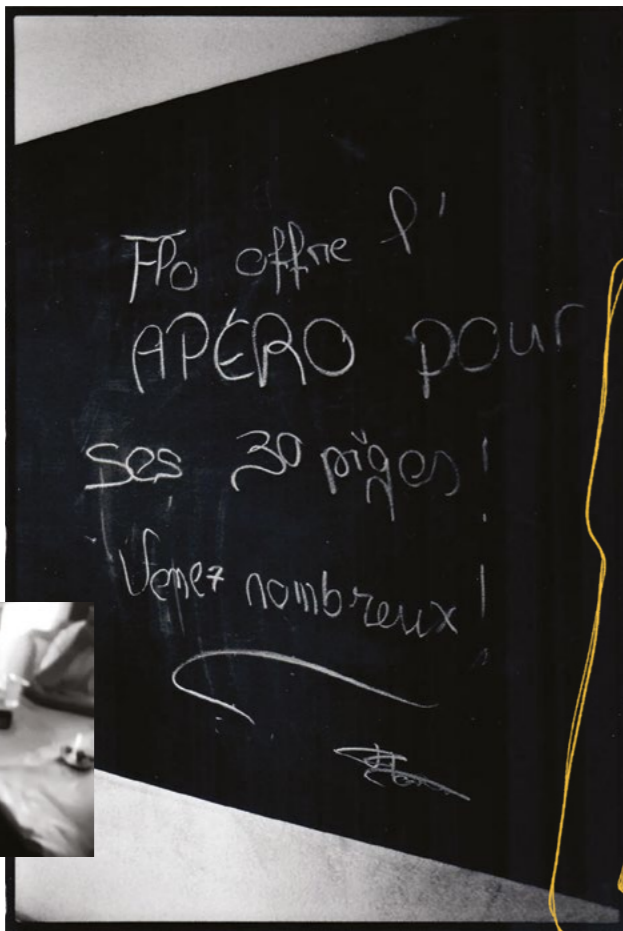 Flo offre l'
APÉRO pour
ses 30 piges !
Venez nombreux !